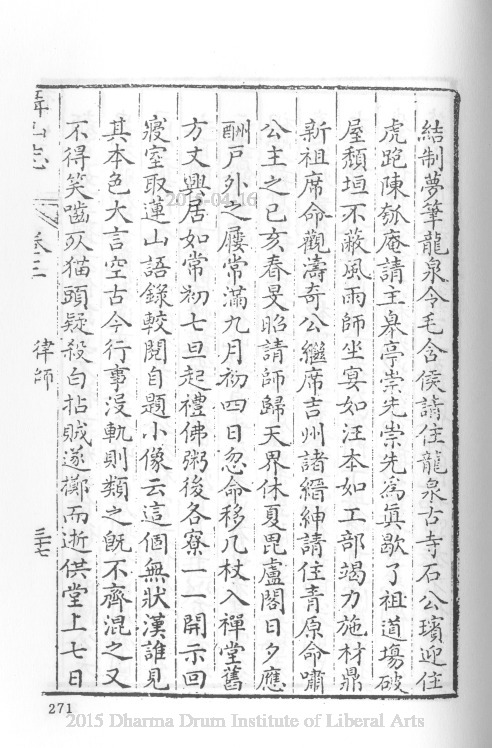 結制夢筆龍泉令毛含侯請住龍泉古寺石公璸迎住
虎跑陳瓠庵請主皋亭崇先崇先為真歇了祖道場破
屋頹垣不蔽風雨師坐宴如汪本如工部竭力施材鼎
新祖席命觀濤奇公繼席吉州諸縉紳請住青原命嘯
公主之己亥春旻昭請師歸天界休夏毘盧閣日夕應
酬戶外之屨常滿九月初四日忽命移几杖入禪堂舊
方丈興居如常初七旦起禮佛粥後各寮一一開示回
寢室取蓮山語錄較閱自題小像云這個無狀漢誰見
其本色大言空古今行事沒軌則類之既不齊混之又
不得笑嚙死猫頭疑殺白拈賊遂擲而逝供堂上七日
卷三 律師
三七
271
2015-04-16
2015 Dharma Drum Institute of Liberal Arts